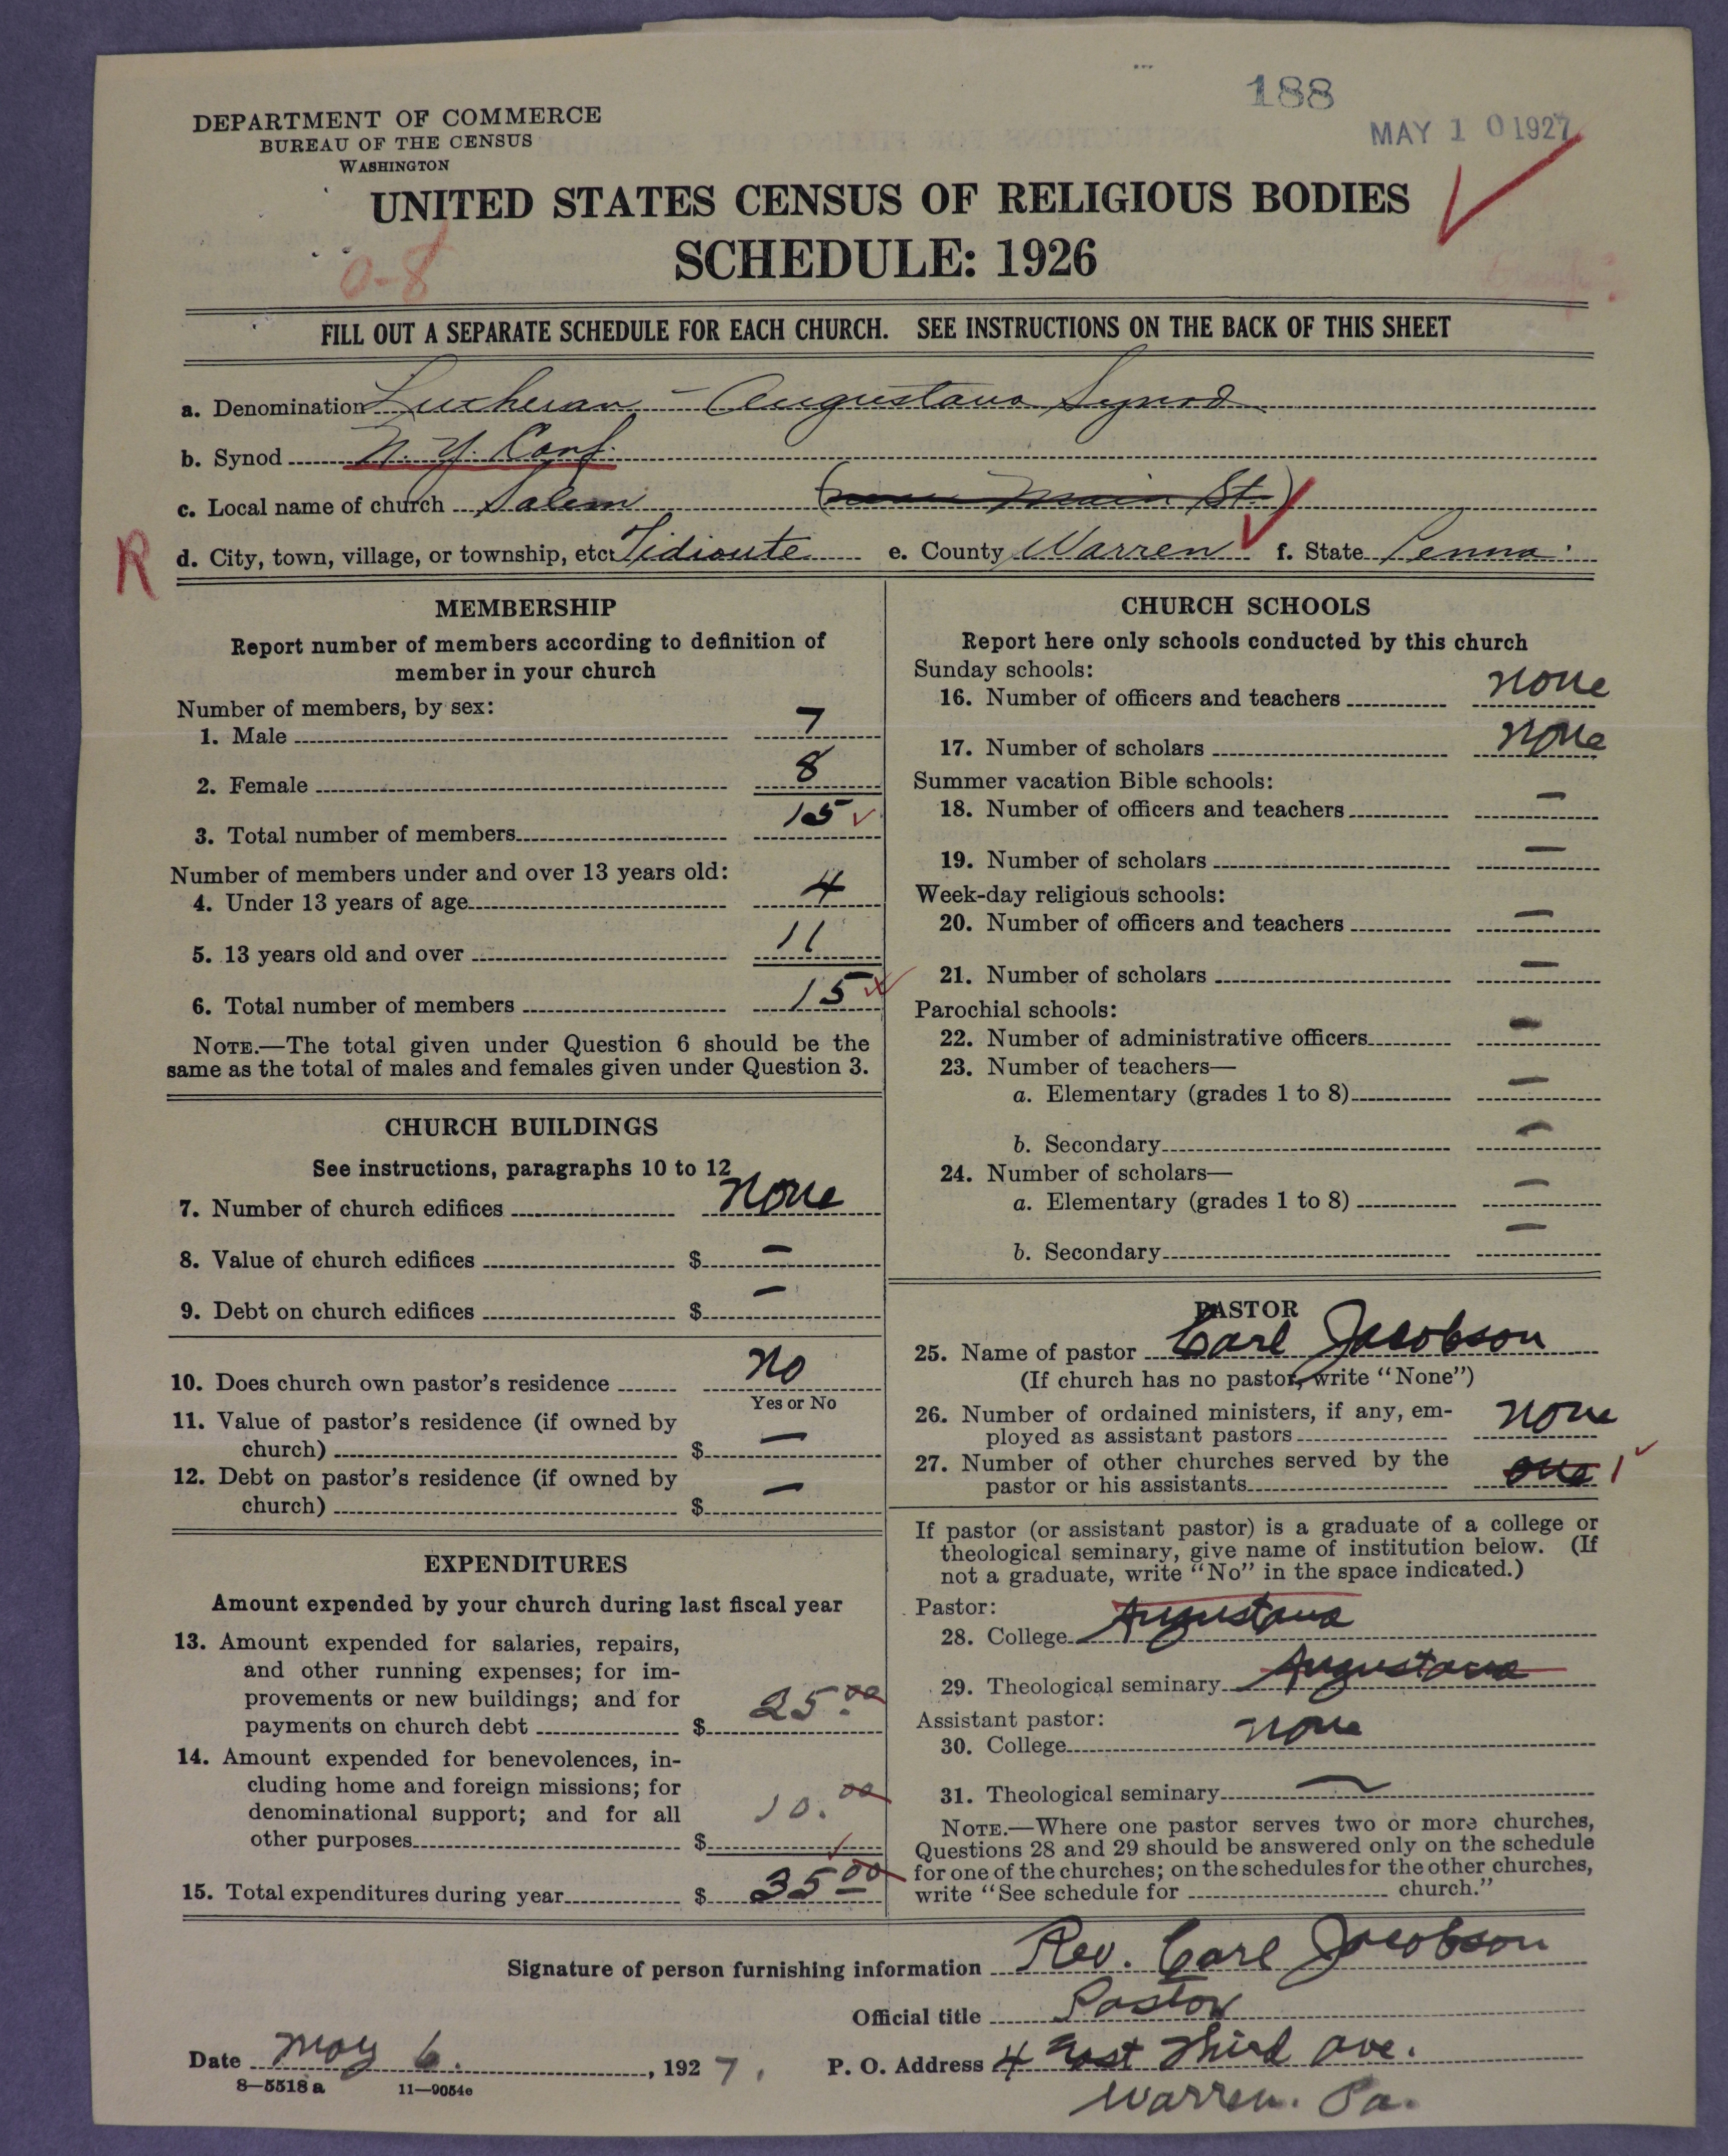 188
MAY 10 1927
DEPARTMENT OF COMMERCE
BUREAU OF THE CENSUS
WASHINGTON
UNITED STATES CENSUS OF RELIGIOUS BODIES
SCHEDULE: 1926
0-8
FILL OUT A SEPARATE SCHEDULE FOR EACH CHURCH. SEE INSTRUCTIONS ON THE BACK OF THIS SHEET
a. Denomination Lutheran - Augustana Synod
b. Synod N. Y. Conf.
c. Local name of church Salem ( Main St.)
R d. City, town, village, or township, etc. Tidioute e. County Warren f. State Penna.
MEMBERSHIP
Report number of members according to definition of
member in your church
Number of members, by sex:
1. Male 7
2. Female 8
3. Total number of members 15
Number of members under and over 13 years old:
4. Under 13 years of age 4
5. 13 years old and over 11
6. Total number of members 15
NOTE.—The total given under Question 6 should be the
same as the total of males and females given under Question 3.
CHURCH BUILDINGS
See instructions, paragraphs 10 to 12
7. Number of church edifices none
8. Value of church edifices $ —
9. Debt on church edifices $ —
10. Does church own pastor's residence no
Yes or No
11. Value of pastor's residence (if owned by
church) $ —
12. Debt on pastor's residence (if owned by
church) $ —
EXPENDITURES
Amount expended by your church during last fiscal year
13. Amount expended for salaries, repairs,
and other running expenses; for im-
provements or new buildings; and for
payments on church debt $ 25.00
14. Amount expended for benevolences, in-
cluding home and foreign missions; for
denominational support; and for all
other purposes $ 10.00
15. Total expenditures during year $ 35.00
CHURCH SCHOOLS
Report here only schools conducted by this church
Sunday schools:
16. Number of officers and teachers none
17. Number of scholars none
Summer vacation Bible schools:
18. Number of officers and teachers —
19. Number of scholars —
Week-day religious schools:
20. Number of officers and teachers —
21. Number of scholars —
Parochial schools:
22. Number of administrative officers —
23. Number of teachers—
a. Elementary (grades 1 to 8) —
b. Secondary —
24. Number of scholars—
a. Elementary (grades 1 to 8) —
b. Secondary —
PASTOR
25. Name of pastor Carl Jacobson
(If church has no pastor, write "None")
26. Number of ordained ministers, if any, em-
ployed as assistant pastors none
27. Number of other churches served by the
pastor or his assistants one 1
If pastor (or assistant pastor) is a graduate of a college or
theological seminary, give name of institution below. (If
not a graduate, write "No" in the space indicated.)
Pastor:
28. College Augustana
29. Theological seminary Augustana
Assistant pastor:
30. College none
31. Theological seminary —
NOTE.—Where one pastor serves two or more churches,
Questions 28 and 29 should be answered only on the schedule
for one of the churches; on the schedules for the other churches,
write "See schedule for church."
Signature of person furnishing information Rev. Carl Jacobson
Official title Pastor
Date May 6. , 1927. P. O. Address 4 East Third Ave.
Warren. Pa.
8—5518 a 11—9054e